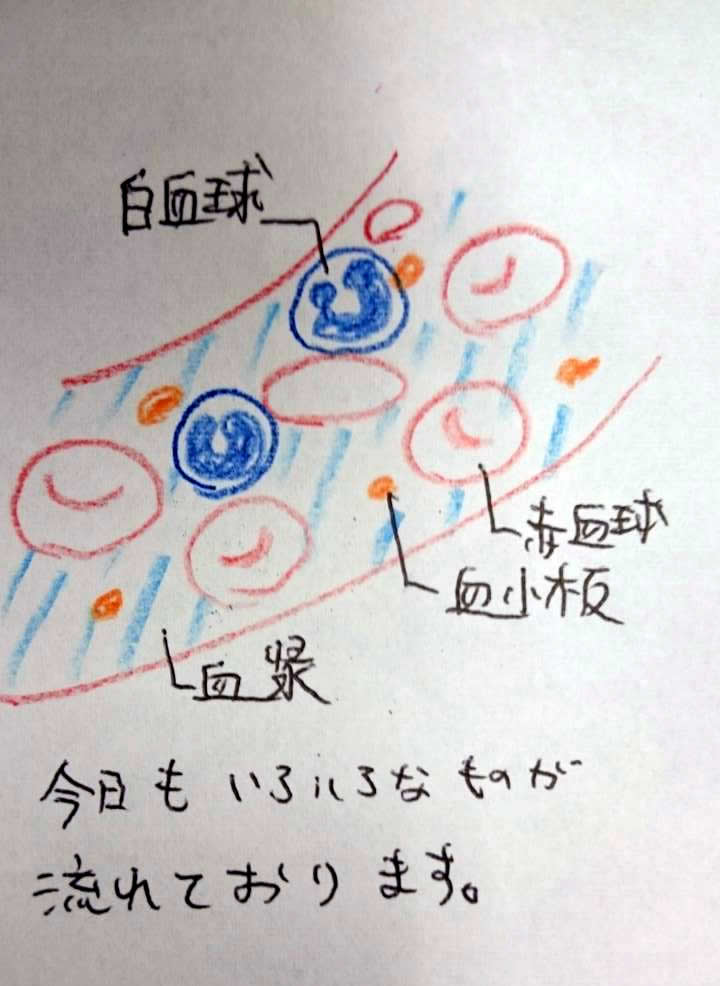 白血球
赤血球
血小板
血漿
今日もいろいろなものが
流れております。